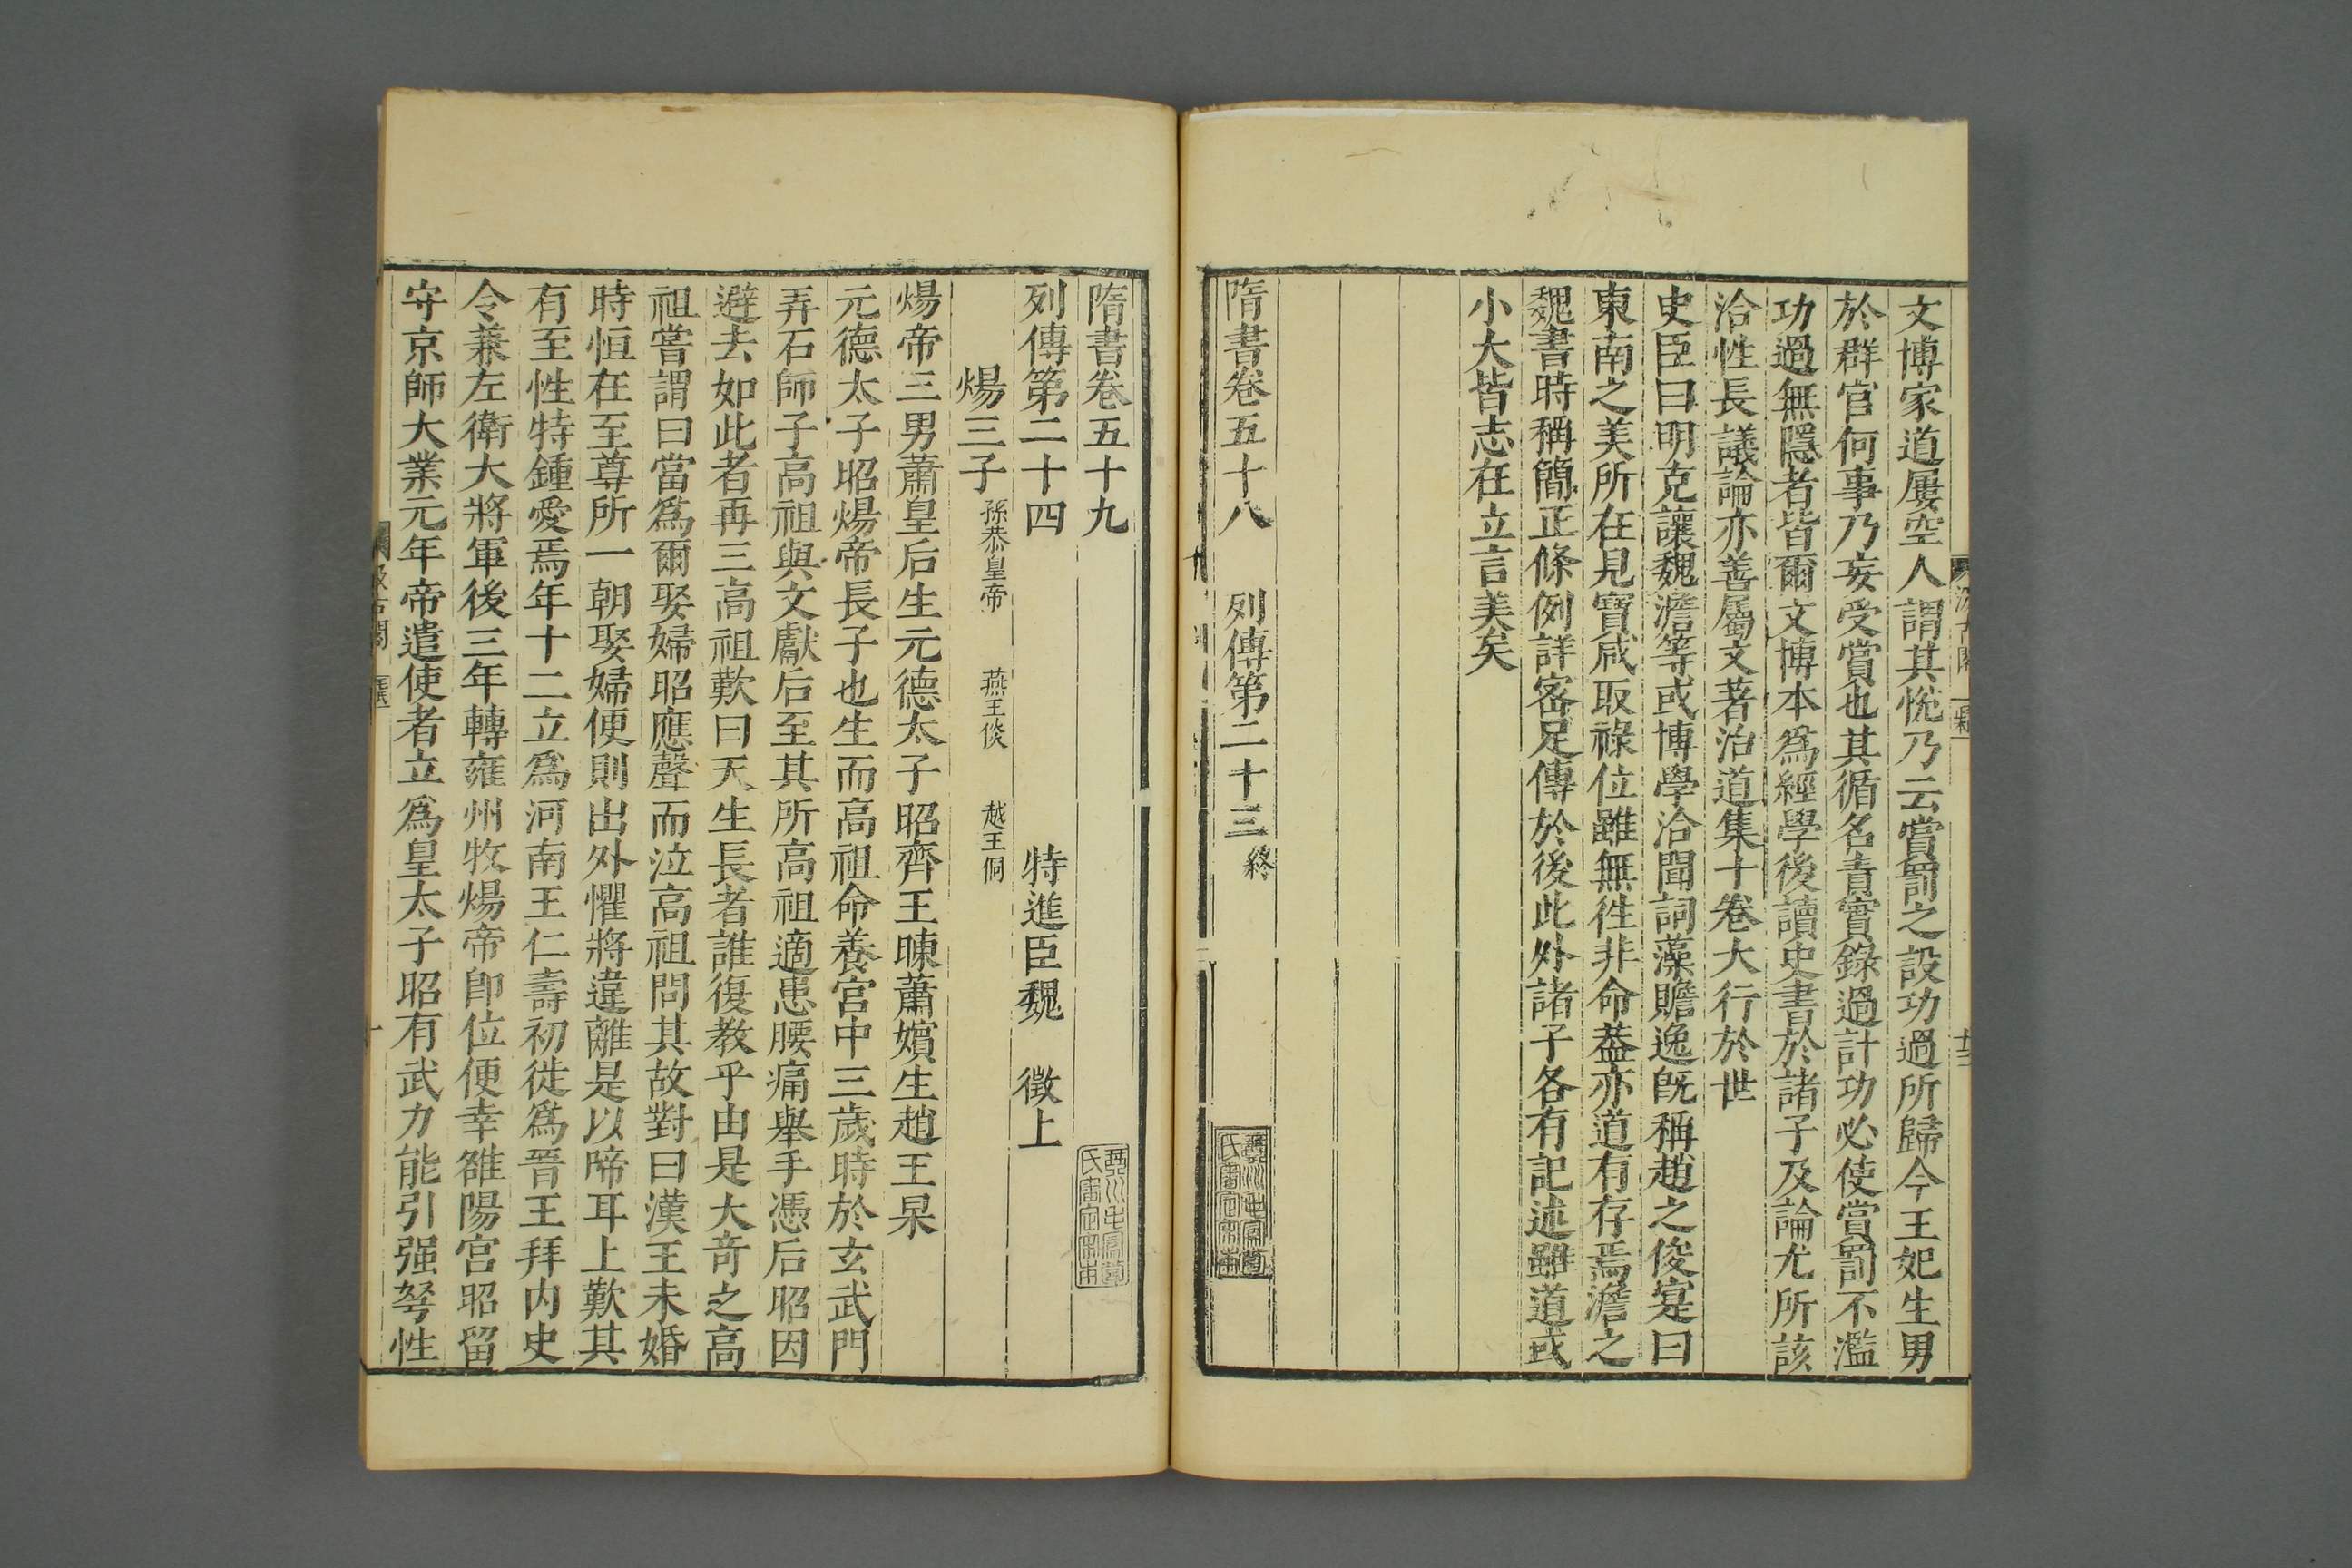 文博家道屢空人謂其悅乃云賞罰之設功過所歸今王妃生男
於群官何事乃妄受賞也其循名責實錄過計功必使賞罰不濫
功過無隱者皆爾文博本爲經學後讀史書於諸子及論尤所該
洽性長議論亦善屬文著治道集十卷大行於世
史臣曰明克讓魏澹等或博學洽聞詞藻贍逸旣稱趙之俊寔曰
東南之美所在見寶咸取祿位雖無徃非命葢亦道有存焉澹之
魏書時稱簡正條例詳密足傳於後此外諸子各有記述雖道或
小大皆志在立言美矣
隋書卷五十八 列傳第二十三 終
隋書卷五十九
列傳第二十四 特進臣魏 徵上
煬三子 孫恭皇帝 燕王倓 越王侗
煬帝三男蕭皇后生元德太子昭齊王暕蕭嬪生趙王杲
元德太子昭煬帝長子也生而高祖命養宮中三歲時於玄武門
弄石師子高祖與文獻后至其所高祖適患腰痛舉手憑后昭因
避去如此者再三高祖歎曰天生長者誰復教乎由是大竒之高
祖嘗謂曰當爲爾娶婦昭應聲而泣高祖問其故對曰漢王未婚
時恒在至尊所一朝娶婦便則出外懼將違離是以啼耳上歎其
有至性特鍾愛焉年十二立爲河南王仁壽初徙爲晉王拜内史
令兼左衛大將軍後三年轉雍州牧煬帝卽位便幸雒陽宮昭留
守京師大業元年帝遣使者立爲皇太子昭有武力能引强弩性